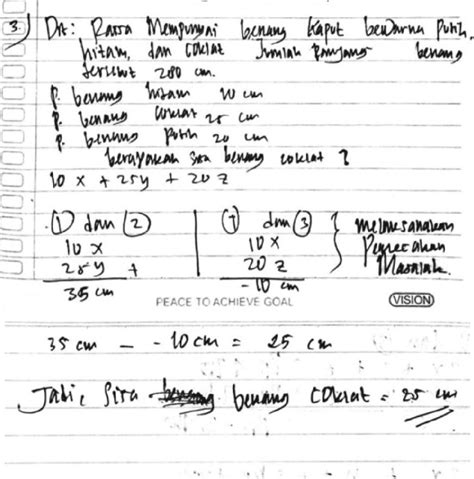 3) Dit: Raisa Mempunyai benang kaput bewarna putih,
hitam, dan coklat Jumlah panjang benang
tersebut 280 cm.
p. benang hitam 10 cm
p. benang coklat 25 cm
p. benang putih 20 cm
berapakah sisa benang coklat ?
10 x + 25y + 20 z
① dan ②
10 x
25 y +
35 cm
① dan ③
10 x
20 z
- 10 cm
melaksanakan
Pemecahan
Masalah.
PEACE TO ACHIEVE GOAL
VISION
35 cm - - 10 cm = 25 cm
Jadi, Sisa benang coklat = 25 cm